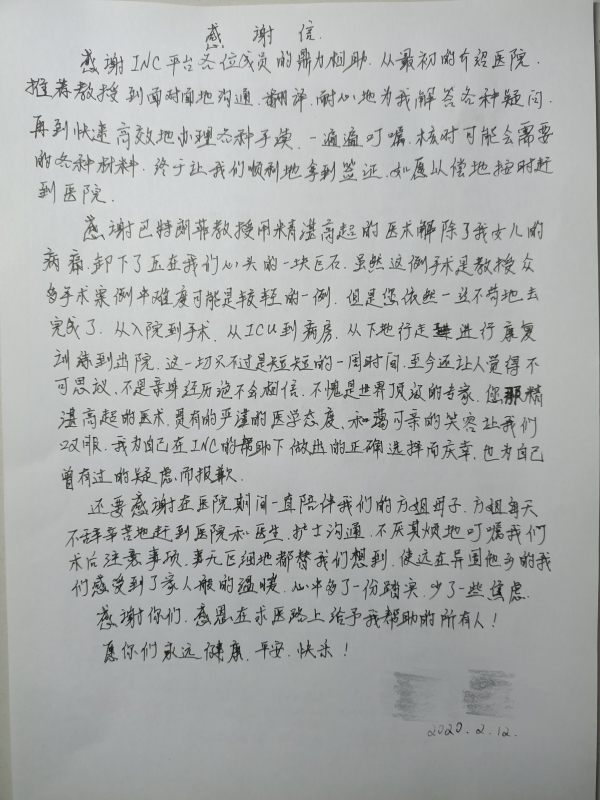 感谢信.
感谢INC平台各位成员的鼎力相助.从最初的介绍医院.
推荐教授到面对面地沟通.翻译.耐心地为我解答各种疑问.
再到快速高效地办理各种手续.一遍遍叮嘱.核对可能会需要
的各种材料.终于让我们顺利地拿到签证.如愿以偿地按时赶
到医院.
感谢巴特朗菲教授用精湛高超的医术解除了我女儿的
病痛.卸下了压在我们心头的一块巨石.虽然这例手术是教授众
多手术案例中难度可能是较轻的一例.但是您依然一丝不苟地去
完成了.从入院到手术.从ICU到病房.从下地行走进行康复
训练到出院.这一切只不过是短短的一周时间.至今还让人觉得不
可思议.不是亲身经历绝不会相信.不愧是世界顶级的专家.您那精
湛高超的医术.具有的严谨的医学态度.和蔼可亲的笑容让我们
叹服.我为自己在INC的帮助下做出的正确选择而庆幸.也为自己
曾有过的疑虑而报歉.
还要感谢在医院期间一直陪伴我们的方姐母子.方姐每天
不辞辛苦地赶到医院和医生.护士沟通.不厌其烦地叮嘱我们
术后注意事项.事无巨细地都替我们想到.使远在异国他乡的我
们感受到了家人般的温暖.心中多了一份踏实.少了一些焦虑.
感谢你们.感恩在求医路上给予我帮助的所有人!
愿你们永远健康.平安.快乐!
2020.2.12.